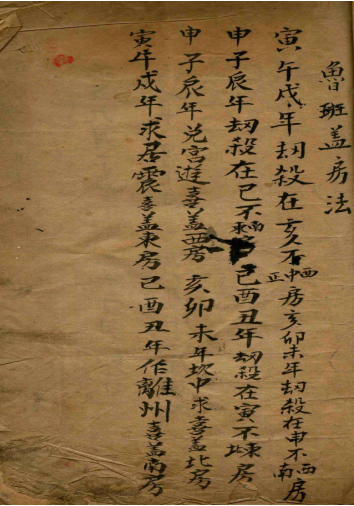 魯班盖房法
寅午戌年刼殺在亥不中西正房亥卯未年刼殺在申不西南房
申子辰年刼殺在巳不東南巳酉丑年刼殺在寅不埭房
申子辰年兑宫遊喜盖西房亥卯未年坎中求喜盖北房
寅午戌年求居震喜盖東房巳酉丑年作離州喜盖南房